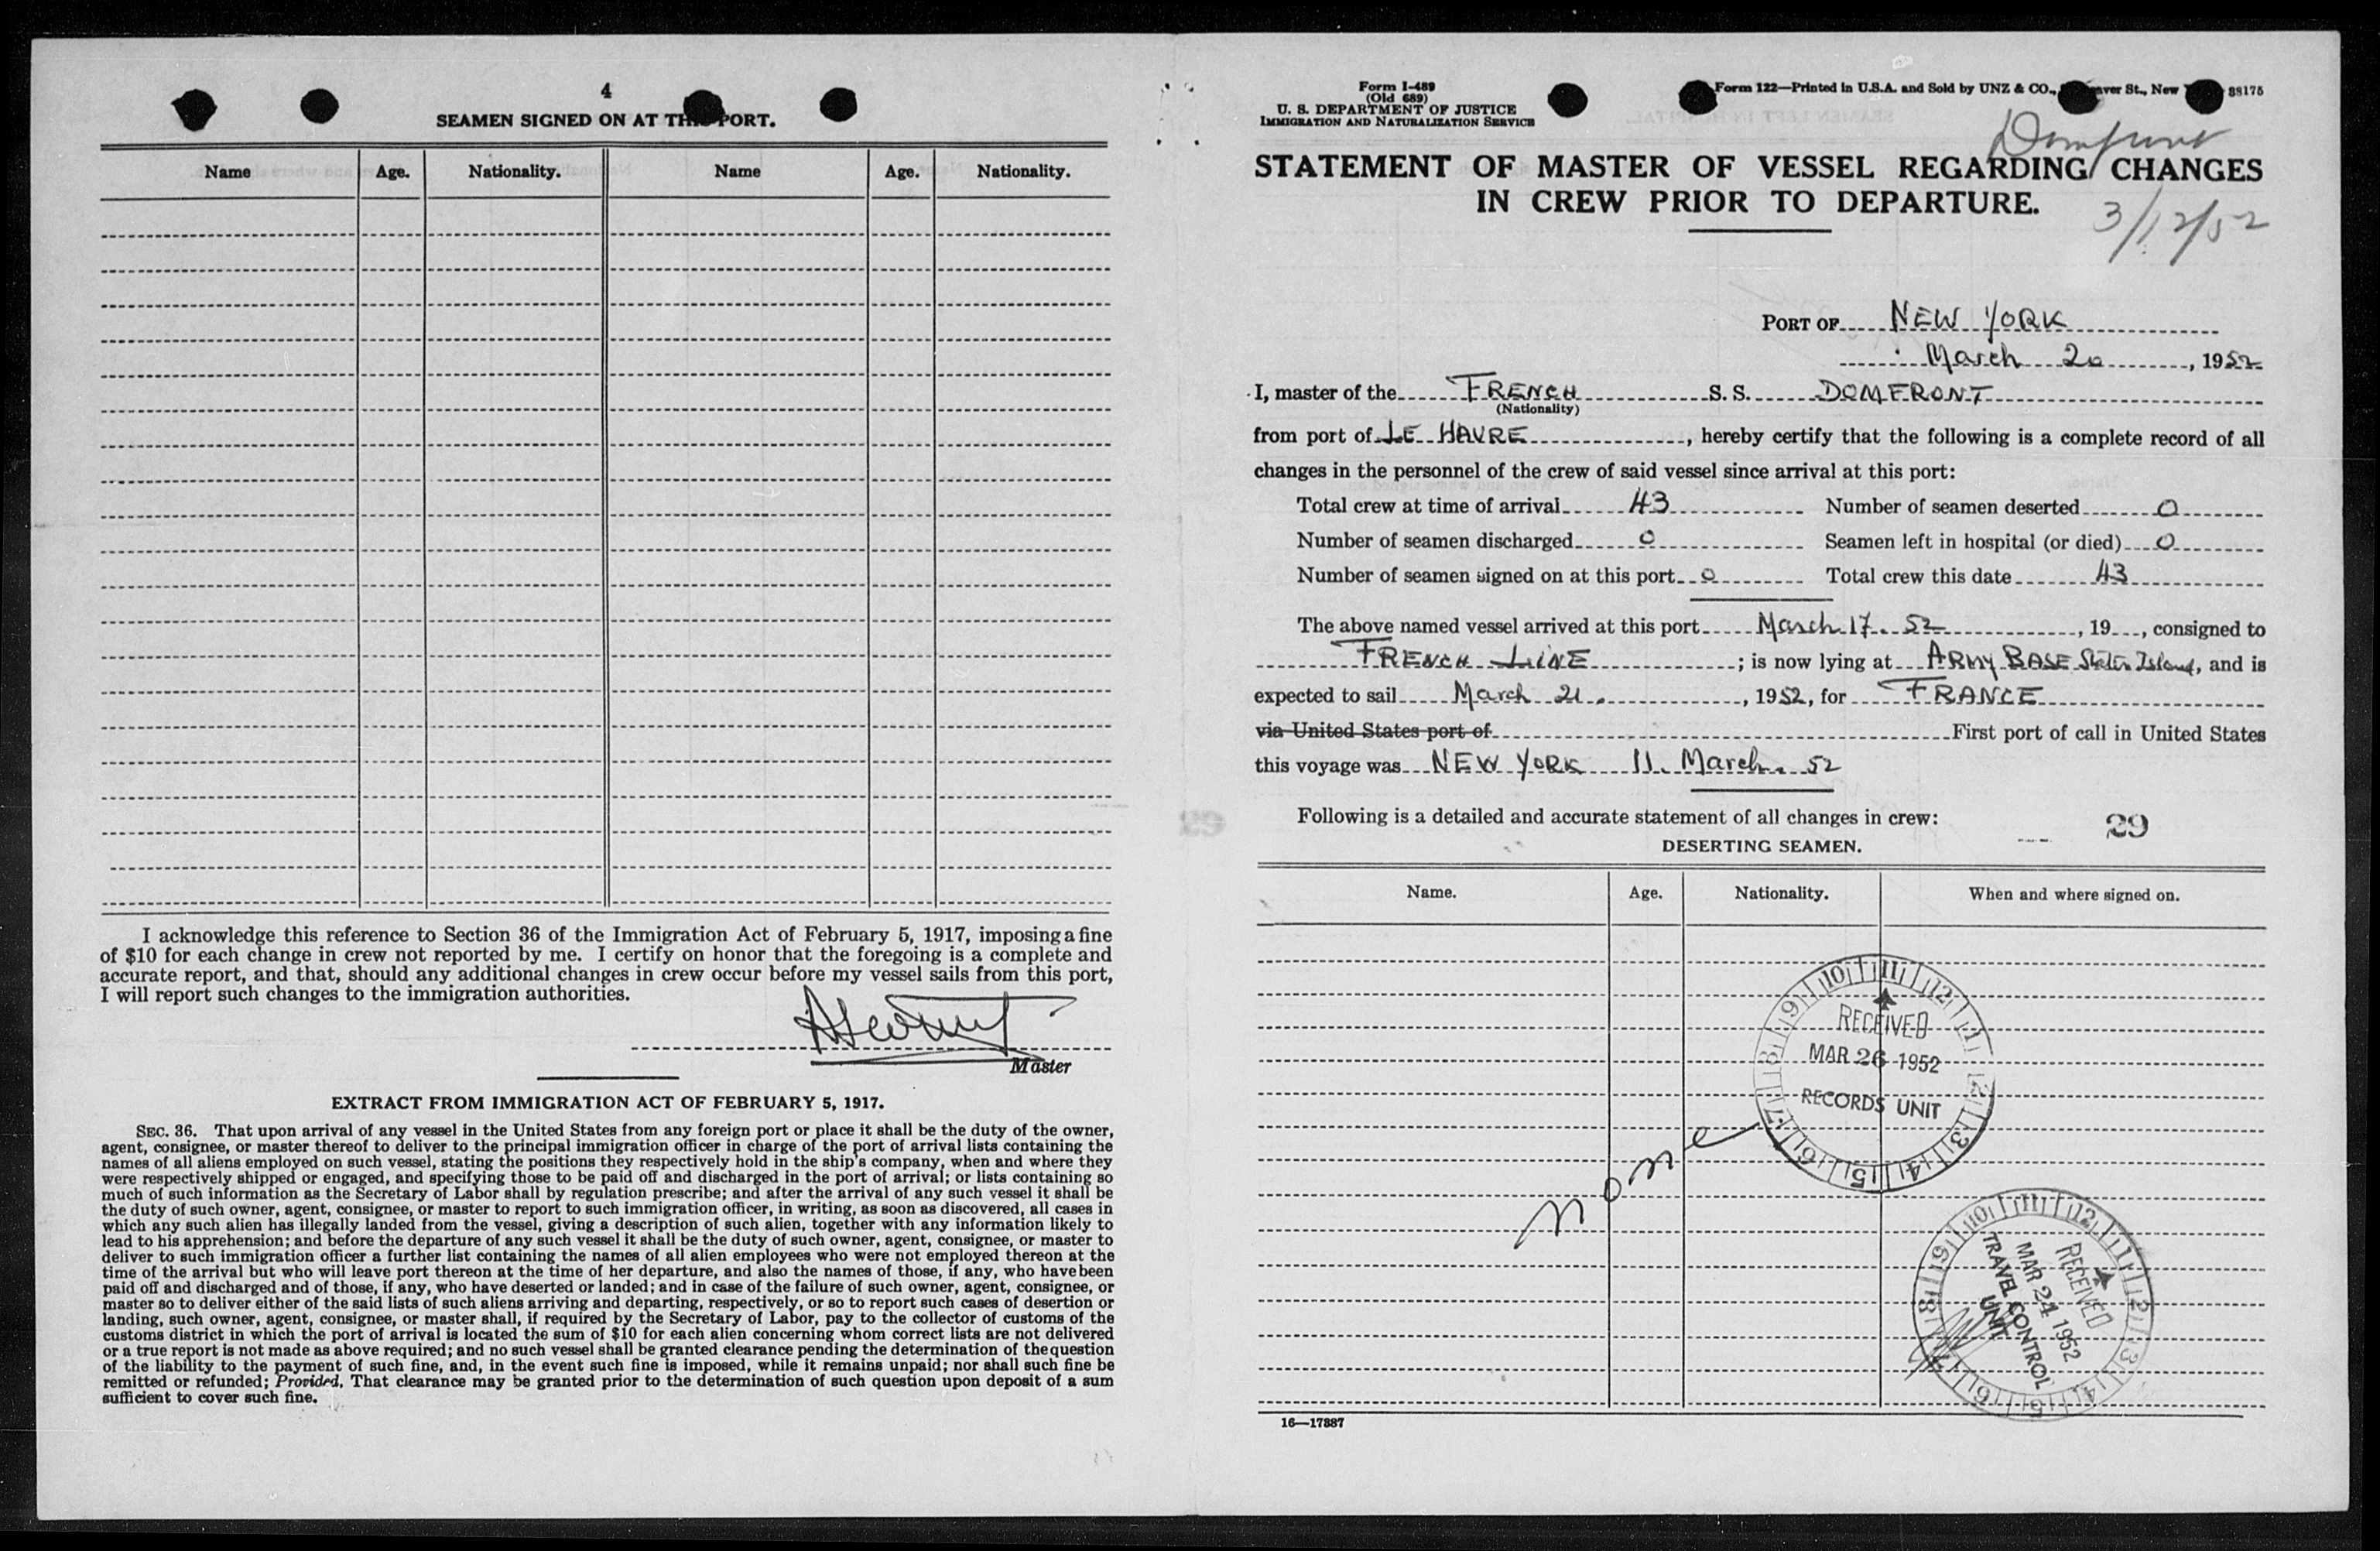 4
SEAMEN SIGNED ON AT THIS PORT.
Name Age. Nationality. Name Age. Nationality.
I acknowledge this reference to Section 36 of the Immigration Act of February 5, 1917, imposing a fine
of $10 for each change in crew not reported by me. I certify on honor that the foregoing is a complete and
accurate report, and that, should any additional changes in crew occur before my vessel sails from this port,
I will report such changes to the immigration authorities.
Master
EXTRACT FROM IMMIGRATION ACT OF FEBRUARY 5, 1917.
SEC. 36. That upon arrival of any vessel in the United States from any foreign port or place it shall be the duty of the owner,
agent, consignee, or master thereof to deliver to the principal immigration officer in charge of the port of arrival lists containing the
names of all aliens employed on such vessel, stating the positions they respectively hold in the ship's company, when and where they
were respectively shipped or engaged, and specifying those to be paid off and discharged in the port of arrival; or lists containing so
much of such information as the Secretary of Labor shall by regulation prescribe; and after the arrival of any such vessel it shall be
the duty of such owner, agent, consignee, or master to report to such immigration officer, in writing, as soon as discovered, all cases in
which any such alien has illegally landed from the vessel, giving a description of such alien, together with any information likely to
lead to his apprehension; and before the departure of any such vessel it shall be the duty of such owner, agent, consignee, or master to
deliver to such immigration officer a further list containing the names of all alien employees who were not employed thereon at the
time of the arrival but who will leave port thereon at the time of her departure, and also the names of those, if any, who have been
paid off and discharged and of those, if any, who have deserted or landed; and in case of the failure of such owner, agent, consignee, or
master so to deliver either of the said lists of such aliens arriving and departing, respectively, or so to report such cases of desertion or
landing, such owner, agent, consignee, or master shall, if required by the Secretary of Labor, pay to the collector of customs of the
customs district in which the port of arrival is located the sum of $10 for each alien concerning whom correct lists are not delivered
or a true report is not made as above required; and no such vessel shall be granted clearance pending the determination of the question
of the liability to the payment of such fine, and, in the event such fine is imposed, while it remains unpaid; nor shall such fine be
remitted or refunded; Provided, That clearance may be granted prior to the determination of such question upon deposit of a sum
sufficient to cover such fine.
Form I-489
(Old 689)
U. S. DEPARTMENT OF JUSTICE
IMMIGRATION AND NATURALIZATION SERVICE
Form 122—Printed in U.S.A. and Sold by UNZ & CO., aver St., New 88175
Domfront
STATEMENT OF MASTER OF VESSEL REGARDING CHANGES
IN CREW PRIOR TO DEPARTURE.
3/12/52
PORT OF NEW YORK
March 20, 1952
I, master of the FRENCH S. S. DOMFRONT
(Nationality)
from port of LE HAVRE, hereby certify that the following is a complete record of all
changes in the personnel of the crew of said vessel since arrival at this port:
Total crew at time of arrival 43 Number of seamen deserted 0
Number of seamen discharged 0 Seamen left in hospital (or died) 0
Number of seamen signed on at this port 0 Total crew this date 43
The above named vessel arrived at this port March 17. 52, 19, consigned to
FRENCH LINE; is now lying at ARMY BASE Staten Island, and is
expected to sail March 21., 1952, for FRANCE
via United States port of First port of call in United States
this voyage was NEW YORK 11. March. 52
Following is a detailed and accurate statement of all changes in crew:
29
DESERTING SEAMEN.
Name. Age. Nationality. When and where signed on.
none
10 11 12 1 2 3 4 5 6 7 8 9
RECEIVED
MAR 26 1952
RECORDS UNIT
10 11 12 1 2 3 4 5 6 7 8 9
RECEIVED
MAR 24 1952
TRAVEL CONTROL
UNIT
16—17887